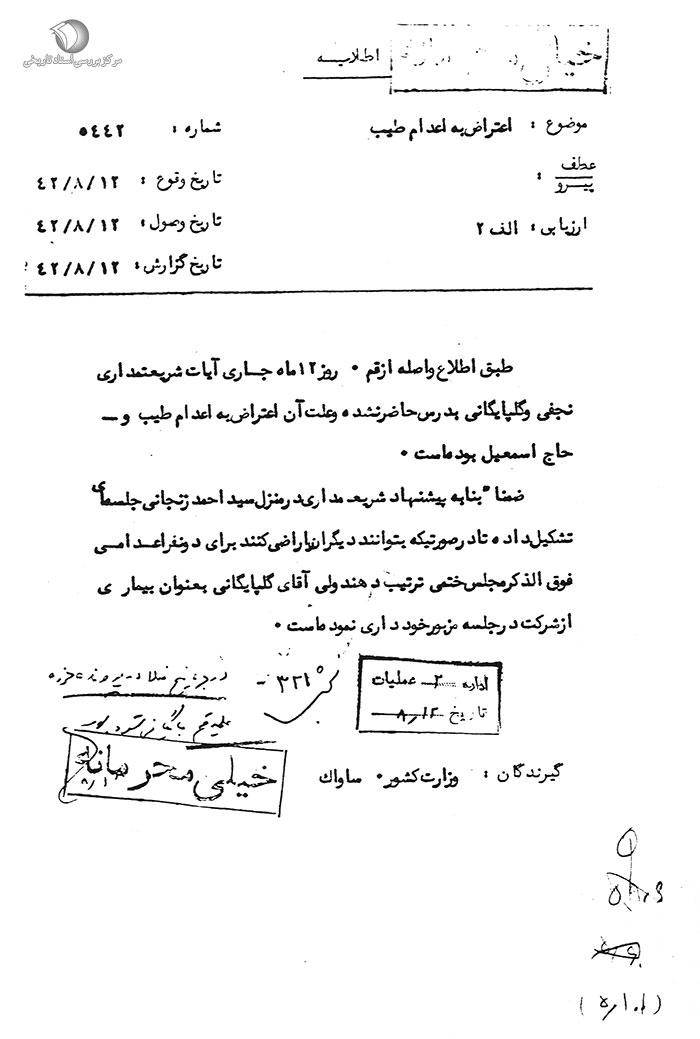 مرکز بررسی اسناد تاریخی
خیلی محرمانه
اطلاعیه
موضوع : اعتراض به اعدام طیب
شماره : ۵۴۴۲
عطف
پیرو :
تاریخ وقوع : ۴۲/۸/۱۲
ارزیابی : الف ۲
تاریخ وصول : ۴۲/۸/۱۲
تاریخ گزارش : ۴۲/۸/۱۲
طبق اطلاع واصله از قم ۰ روز ۱۲ ماه جاری آیات شریعتمداری
نجفی و گلپایگانی بدرس حاضر نشده و علت آن اعتراض به اعدام طیب و ــ
حاج اسمعیل بوده است ۰
ضمنا" بنا به پیشنهاد شریعتمداری در منزل سید احمد زنجانی جلسه‌ای
تشکیل داده تا در صورتیکه بتوانند دیگران را راضی کنند برای دو نفر اعدامی
فوق الذکر مجلس ختمی ترتیب دهند ولی آقای گلپایگانی بعنوان بیماری
از شرکت در جلسه مزبور خودداری نموده است ۰
۳۲۱
اداره ۲ عملیات
تاریخ ۸/۱۲
خیلی محرمانه
گیرندگان : وزارت کشور ۰ ساواک